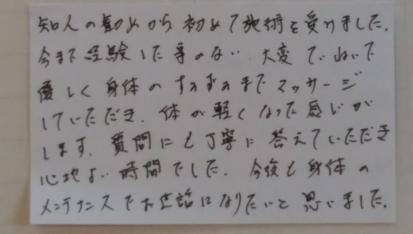 知人の勧めから初めて施術を受けました。
今まで経験した事のない 大変ていねいで
優しく身体のすみずみまでマッサージ
していただき、体が軽くなった感じが
します。質問にも丁寧に答えていただき
心地よい時間でした。今後も身体の
メンテナンスでお世話になりたいと思いました。